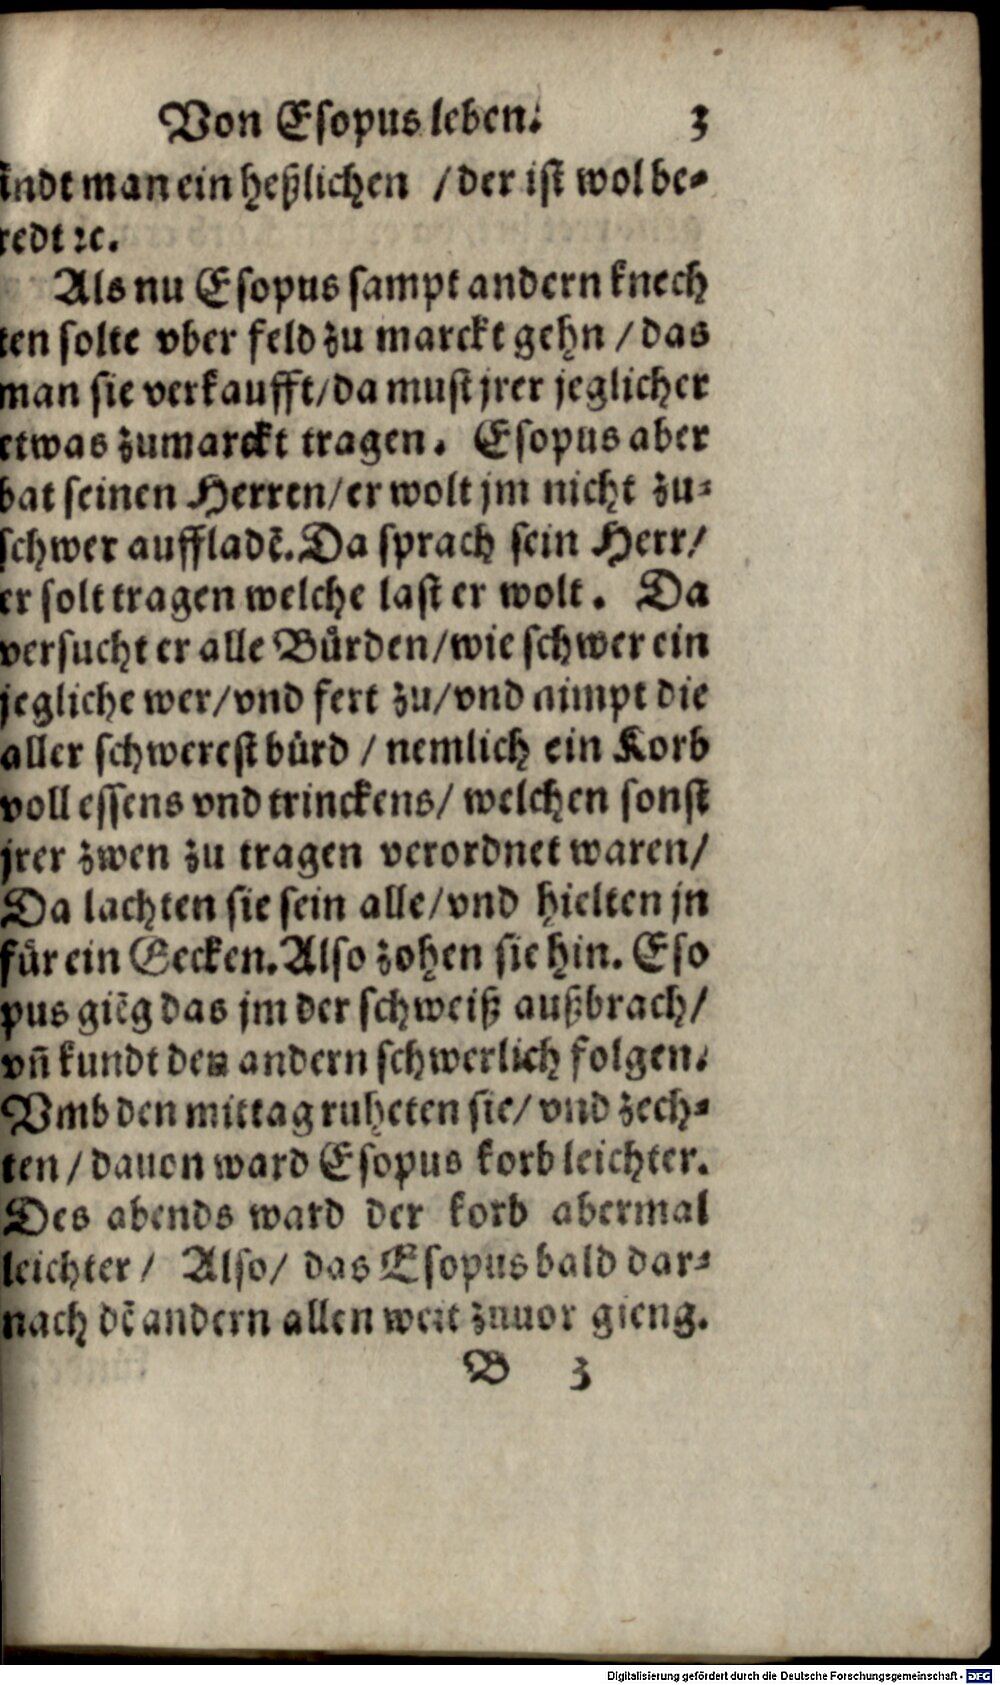 Von Esopus leben. 3
indt man ein heßlichen / der ist wol be-
redt ꝛc.
Als nu Esopus sampt andern knech
ten solte vber feld zu marckt gehn / das
man sie verkaufft / da must jrer jeglicher
etwas zumarckt tragen. Esopus aber
bat seinen Herren / er wolt jm nicht zu-
schwer auffladē. Da sprach sein Herr /
er solt tragen welche last er wolt. Da
versucht er alle Bůrden / wie schwer ein
jegliche wer / vnd fert zu / vnd nimpt die
aller schwerest bůrd / nemlich ein Korb
voll essens vnd trinckens / welchen sonst
jrer zwen zu tragen verordnet waren /
Da lachten sie sein alle / vnd hielten jn
fůr ein Gecken. Also zohen sie hin. Eso
pus giēg das jm der schweiß außbrach /
vn̄ kundt den andern schwerlich folgen.
Vmb den mittag ruheten sie / vnd zech-
ten / dauon ward Esopus korb leichter.
Des abends ward der korb abermal
leichter / Also / das Esopus bald dar-
nach dē andern allen weit zuuor gieng.
B 3
Digitalisierung gefördert durch die Deutsche Forschungsgemeinschaft - DFG